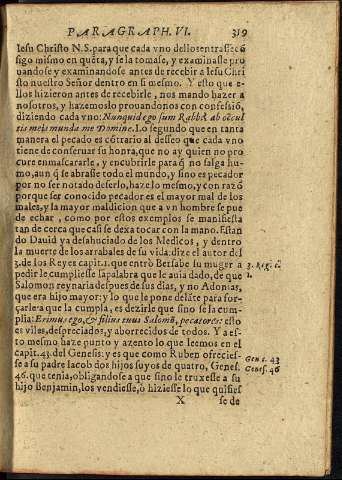 PARAGRAPH. VI. 319
Iesu Christo N.S. para que cada vno dellos entrasse cõ
sigo mismo en quẽta, y se la tomase, y examinasse pro
uandose y examinandose antes de recebir a Iesu Chri
sto nuestro Señor dentro en si mesmo. Y esto que e-
llos hizieron antes de recebirle, nos mandò hazer a
nosotros, y hazemoslo prouandonos con confessiõ,
diziendo cada vno: Nunquid ego sum Rabbi? ab occul
tis meis munda me Domine. Lo segundo que en tanta
manera el pecado es cõtrario al desseo que cada vno
tiene de conseruar su honra, que no ay quien no pro
cure enmascararle, y encubrirle para q̃ no salga hu-
mo, aun q̃ se abrase todo el mundo, y sino es pecador
por no ser notado de serlo, haze lo mesmo, y con razõ
porque ser conocido pecador es el mayor mal de los
males, y la mayor maldicion que a vn hombre se pue
de echar, como por estos exemplos se manifiesta
tan de cerca que casi se dexa tocar con la mano. Estan
do Dauid ya desahuciado de los Medicos, y dentro
la muerte de los arrabales de su vida: dize el autor del
3. de los Reyes capit. 1. que entrò Bersabe su muger a
pedirle cumpliesse la palabra que le auia dado, de que
Salomon reynaria despues de sus dias, y no Adonias,
que era hijo mayor; y lo que le pone delãte para for-
çarle a que la cumpla, es dezirle que sino se la cum-
plia: Erimus ego, & filius tuus Salomõ, pecatores: esto
es viles, despreciados, y aborrecidos de todos. Y a es-
to mesmo haze punto y azento lo que leemos en el
capit. 43. del Genesis: y es que como Ruben ofrecies-
se a su padre Iacob dos hijos suyos de quatro, Genes.
46. que tenia, obligandose a que sino le truxesse a su
hijo Benjamin, los vendiesse, ò hiziesse lo que quisies
X se de
3. Reg. cã
1.
Gen c. 43
Genes. 46